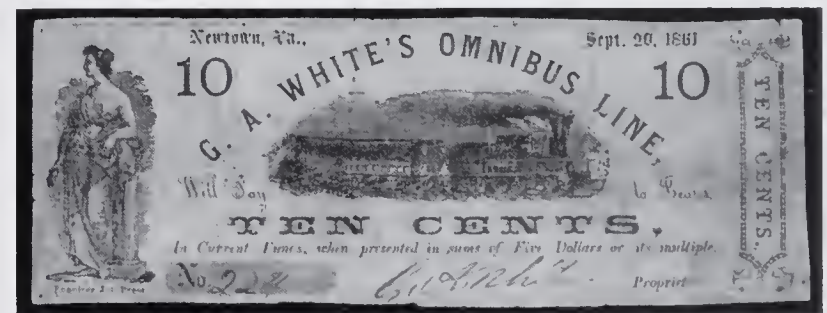 Newtown, Va., Sept. 20, 1861
10 G. A. WHITE'S OMNIBUS LINE, 10
Will Pay to Bearer
TEN CENTS,
In Current Funds, when presented in sums of Five Dollars or its multiple.
No. Propriet
TEN CENTS.